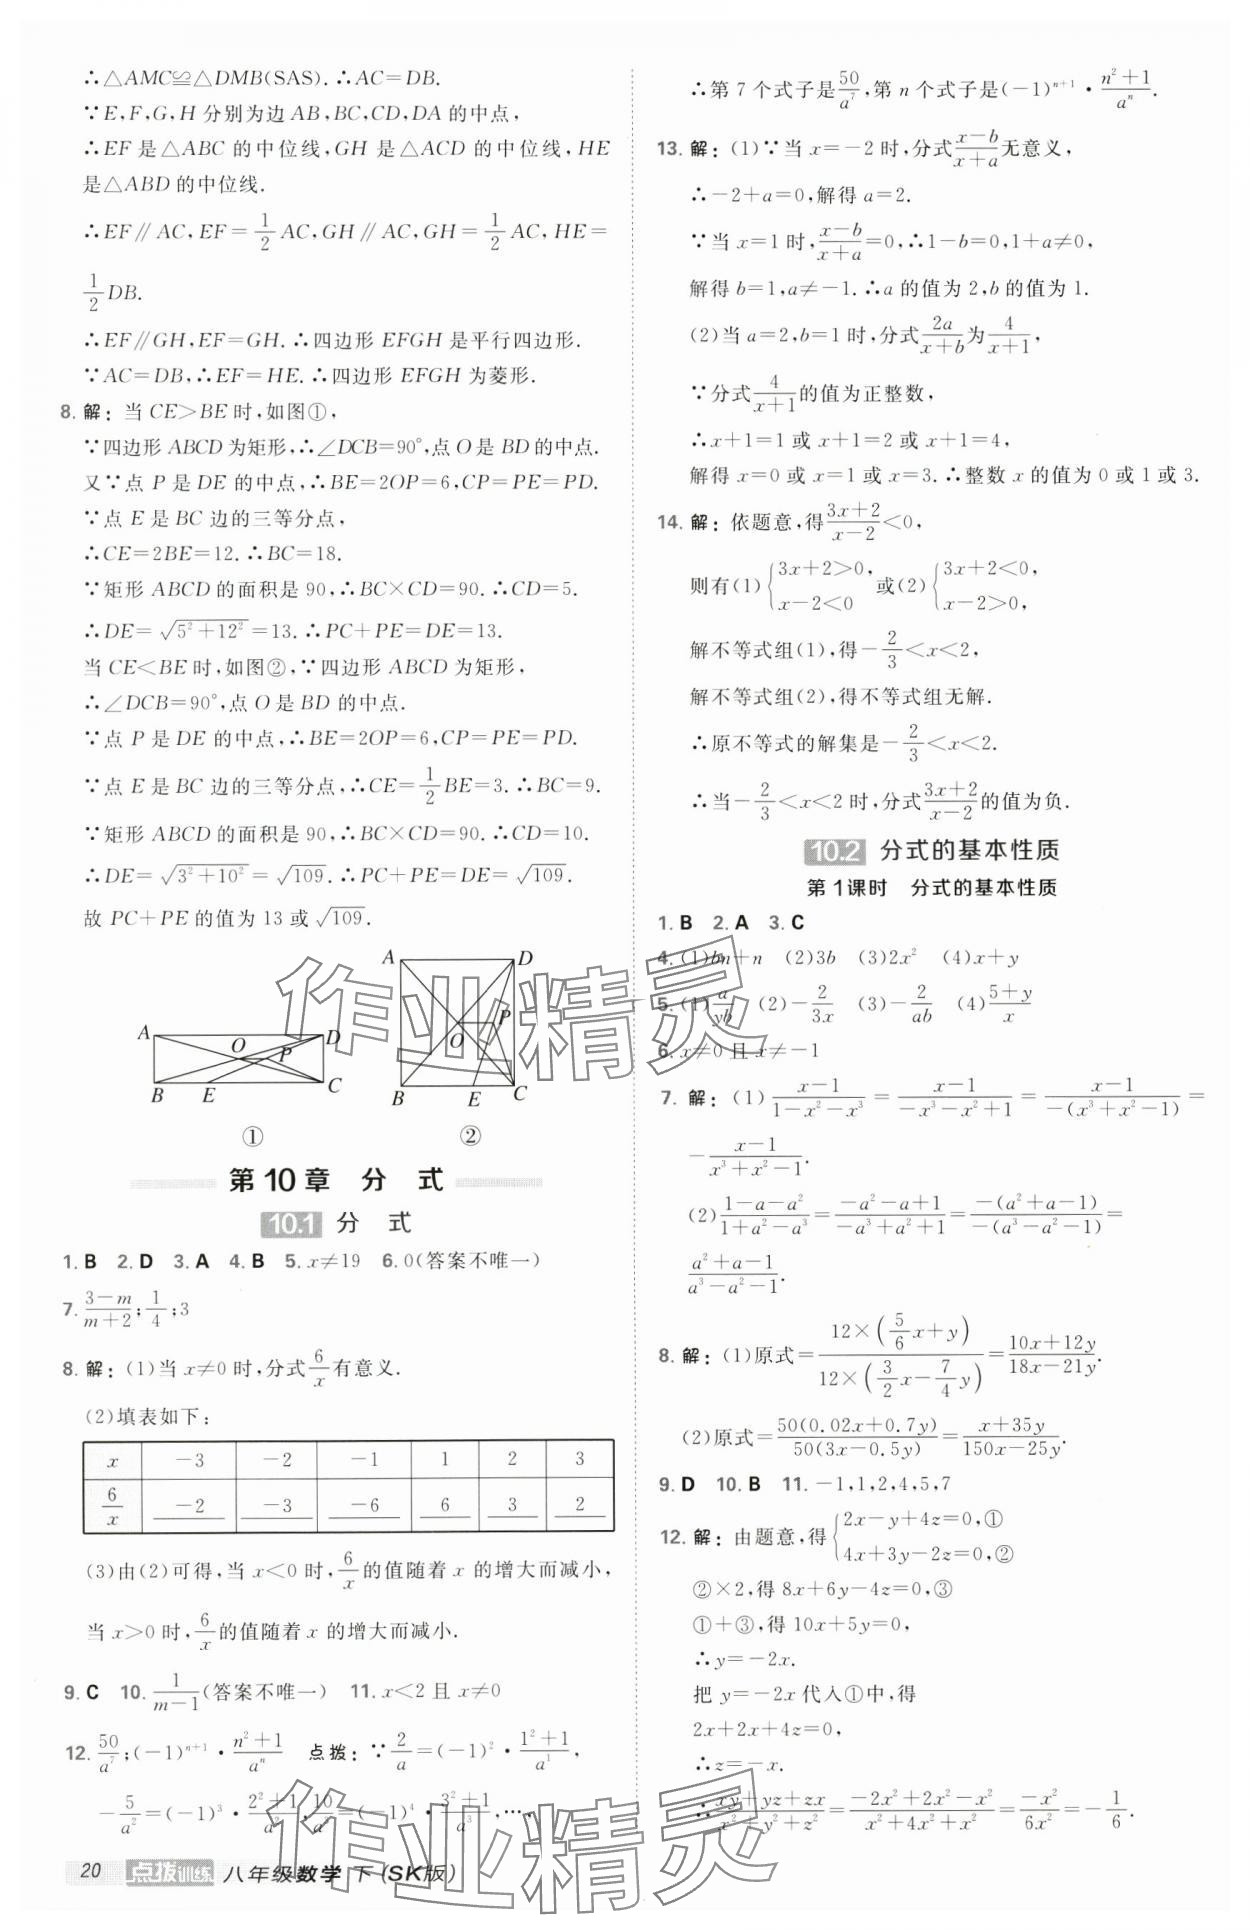 ∴△AMC≌△DMB(SAS). ∴AC=DB.
∵E,F,G,H 分别为边 AB,BC,CD,DA 的中点,
∴EF 是△ABC 的中位线,GH 是△ACD 的中位线,HE
是△ABD 的中位线.
∴EF∥AC,EF=1/2 AC,GH∥AC,GH=1/2 AC,HE=
1/2 DB.
∴EF∥GH,EF=GH. ∴四边形 EFGH 是平行四边形.
∵AC=DB,∴EF=HE. ∴四边形 EFGH 为菱形.
8. 解：当 CE>BE 时,如图①,
∵四边形 ABCD 为矩形,∴∠DCB=90°,点 O 是 BD 的中点.
又∵点 P 是 DE 的中点,∴BE=2OP=6,CP=PE=PD.
∵点 E 是 BC 边的三等分点,
∴CE=2BE=12. ∴BC=18.
∵矩形 ABCD 的面积是 90,∴BC×CD=90. ∴CD=5.
∴DE=√(5²+12²)=13. ∴PC+PE=DE=13.
当 CE<BE 时,如图②,∵四边形 ABCD 为矩形,
∴∠DCB=90°,点 O 是 BD 的中点.
∵点 P 是 DE 的中点,∴BE=2OP=6,CP=PE=PD.
∵点 E 是 BC 边的三等分点,∴CE=1/2 BE=3. ∴BC=9.
∵矩形 ABCD 的面积是 90,∴BC×CD=90. ∴CD=10.
∴DE=√(3²+10²)=√109. ∴PC+PE=DE=√109.
故 PC+PE 的值为 13 或 √109.
A D O P B E C
①
A D O P B E C
②
第 10 章 分 式
10.1 分 式
1. B 2. D 3. A 4. B 5. x≠19 6. 0(答案不唯一)
7. (3-m)/(m+2);1/4;3
8. 解：(1)当 x≠0 时,分式 6/x 有意义.
(2)填表如下：
x -3 -2 -1 1 2 3
6/x -2 -3 -6 6 3 2
(3)由(2)可得,当 x<0 时,6/x 的值随着 x 的增大而减小,
当 x>0 时,6/x 的值随着 x 的增大而减小.
9. C 10. 1/(m-1)(答案不唯一) 11. x<2 且 x≠0
12. 50/a⁷;(-1)ⁿ⁺¹·(n²+1)/aⁿ 点拨：∵2/a=(-1)²·(1²+1)/a¹,
-5/a²=(-1)³·(2²+1)/a²,10/a³=(-1)⁴·(3²+1)/a³,…,
20 点拨训练 八年级数学 下 (SK版)
∴第 7 个式子是50/a⁷,第 n 个式子是(-1)ⁿ⁺¹·(n²+1)/aⁿ.
13. 解：(1)∵当 x=-2 时,分式(x-b)/(x+a)无意义,
∴-2+a=0,解得 a=2.
∵当 x=1 时,(x-b)/(x+a)=0,∴1-b=0,1+a≠0,
解得 b=1,a≠-1. ∴a 的值为 2,b 的值为 1.
(2)当 a=2,b=1 时,分式2a/(x+b)为4/(x+1),
∵分式4/(x+1)的值为正整数,
∴x+1=1 或 x+1=2 或 x+1=4,
解得 x=0 或 x=1 或 x=3. ∴整数 x 的值为 0 或 1 或 3.
14. 解：依题意,得(3x+2)/(x-2)<0,
则有(1){3x+2>0, x-2<0 或(2){3x+2<0, x-2>0,
解不等式组(1),得-2/3<x<2,
解不等式组(2),得不等式组无解.
∴原不等式的解集是-2/3<x<2.
∴当-2/3<x<2 时,分式(3x+2)/(x-2)的值为负.
10.2 分式的基本性质
第 1 课时 分式的基本性质
1. B 2. A 3. C
4. (1)bn+n (2)3b (3)2x² (4)x+y
5. (1)a/yb (2)-2/3x (3)-2/ab (4)(5+y)/x
6. x≠0 且 x≠-1
7. 解：(1)(x-1)/(1-x²-x³)=(x-1)/(-x³-x²+1)=(x-1)/(-(x³+x²-1))=
-(x-1)/(x³+x²-1).
(2)(1-a-a²)/(1+a²-a³)=(-a²-a+1)/(-a³+a²+1)=(-(a²+a-1))/(-(a³-a²-1))=
(a²+a-1)/(a³-a²-1).
8. 解：(1)原式=12×(5/6x+y)/12×(3/2x-7/4y)=(10x+12y)/(18x-21y).
(2)原式=50(0.02x+0.7y)/50(3x-0.5y)=(x+35y)/(150x-25y).
9. D 10. B 11. -1,1,2,4,5,7
12. 解：由题意,得{2x-y+4z=0,① 4x+3y-2z=0,②
②×2,得 8x+6y-4z=0,③
①+③,得 10x+5y=0.
∴y=-2x.
把 y=-2x 代入①中,得
2x+2x+4z=0,
∴z=-x.
∴(xy+yz+zx)/(x²+y²+z²)=(-2x²+2x²-x²)/(x²+4x²+x²)=-x²/6x²=-1/6.
作业精灵
作业精灵